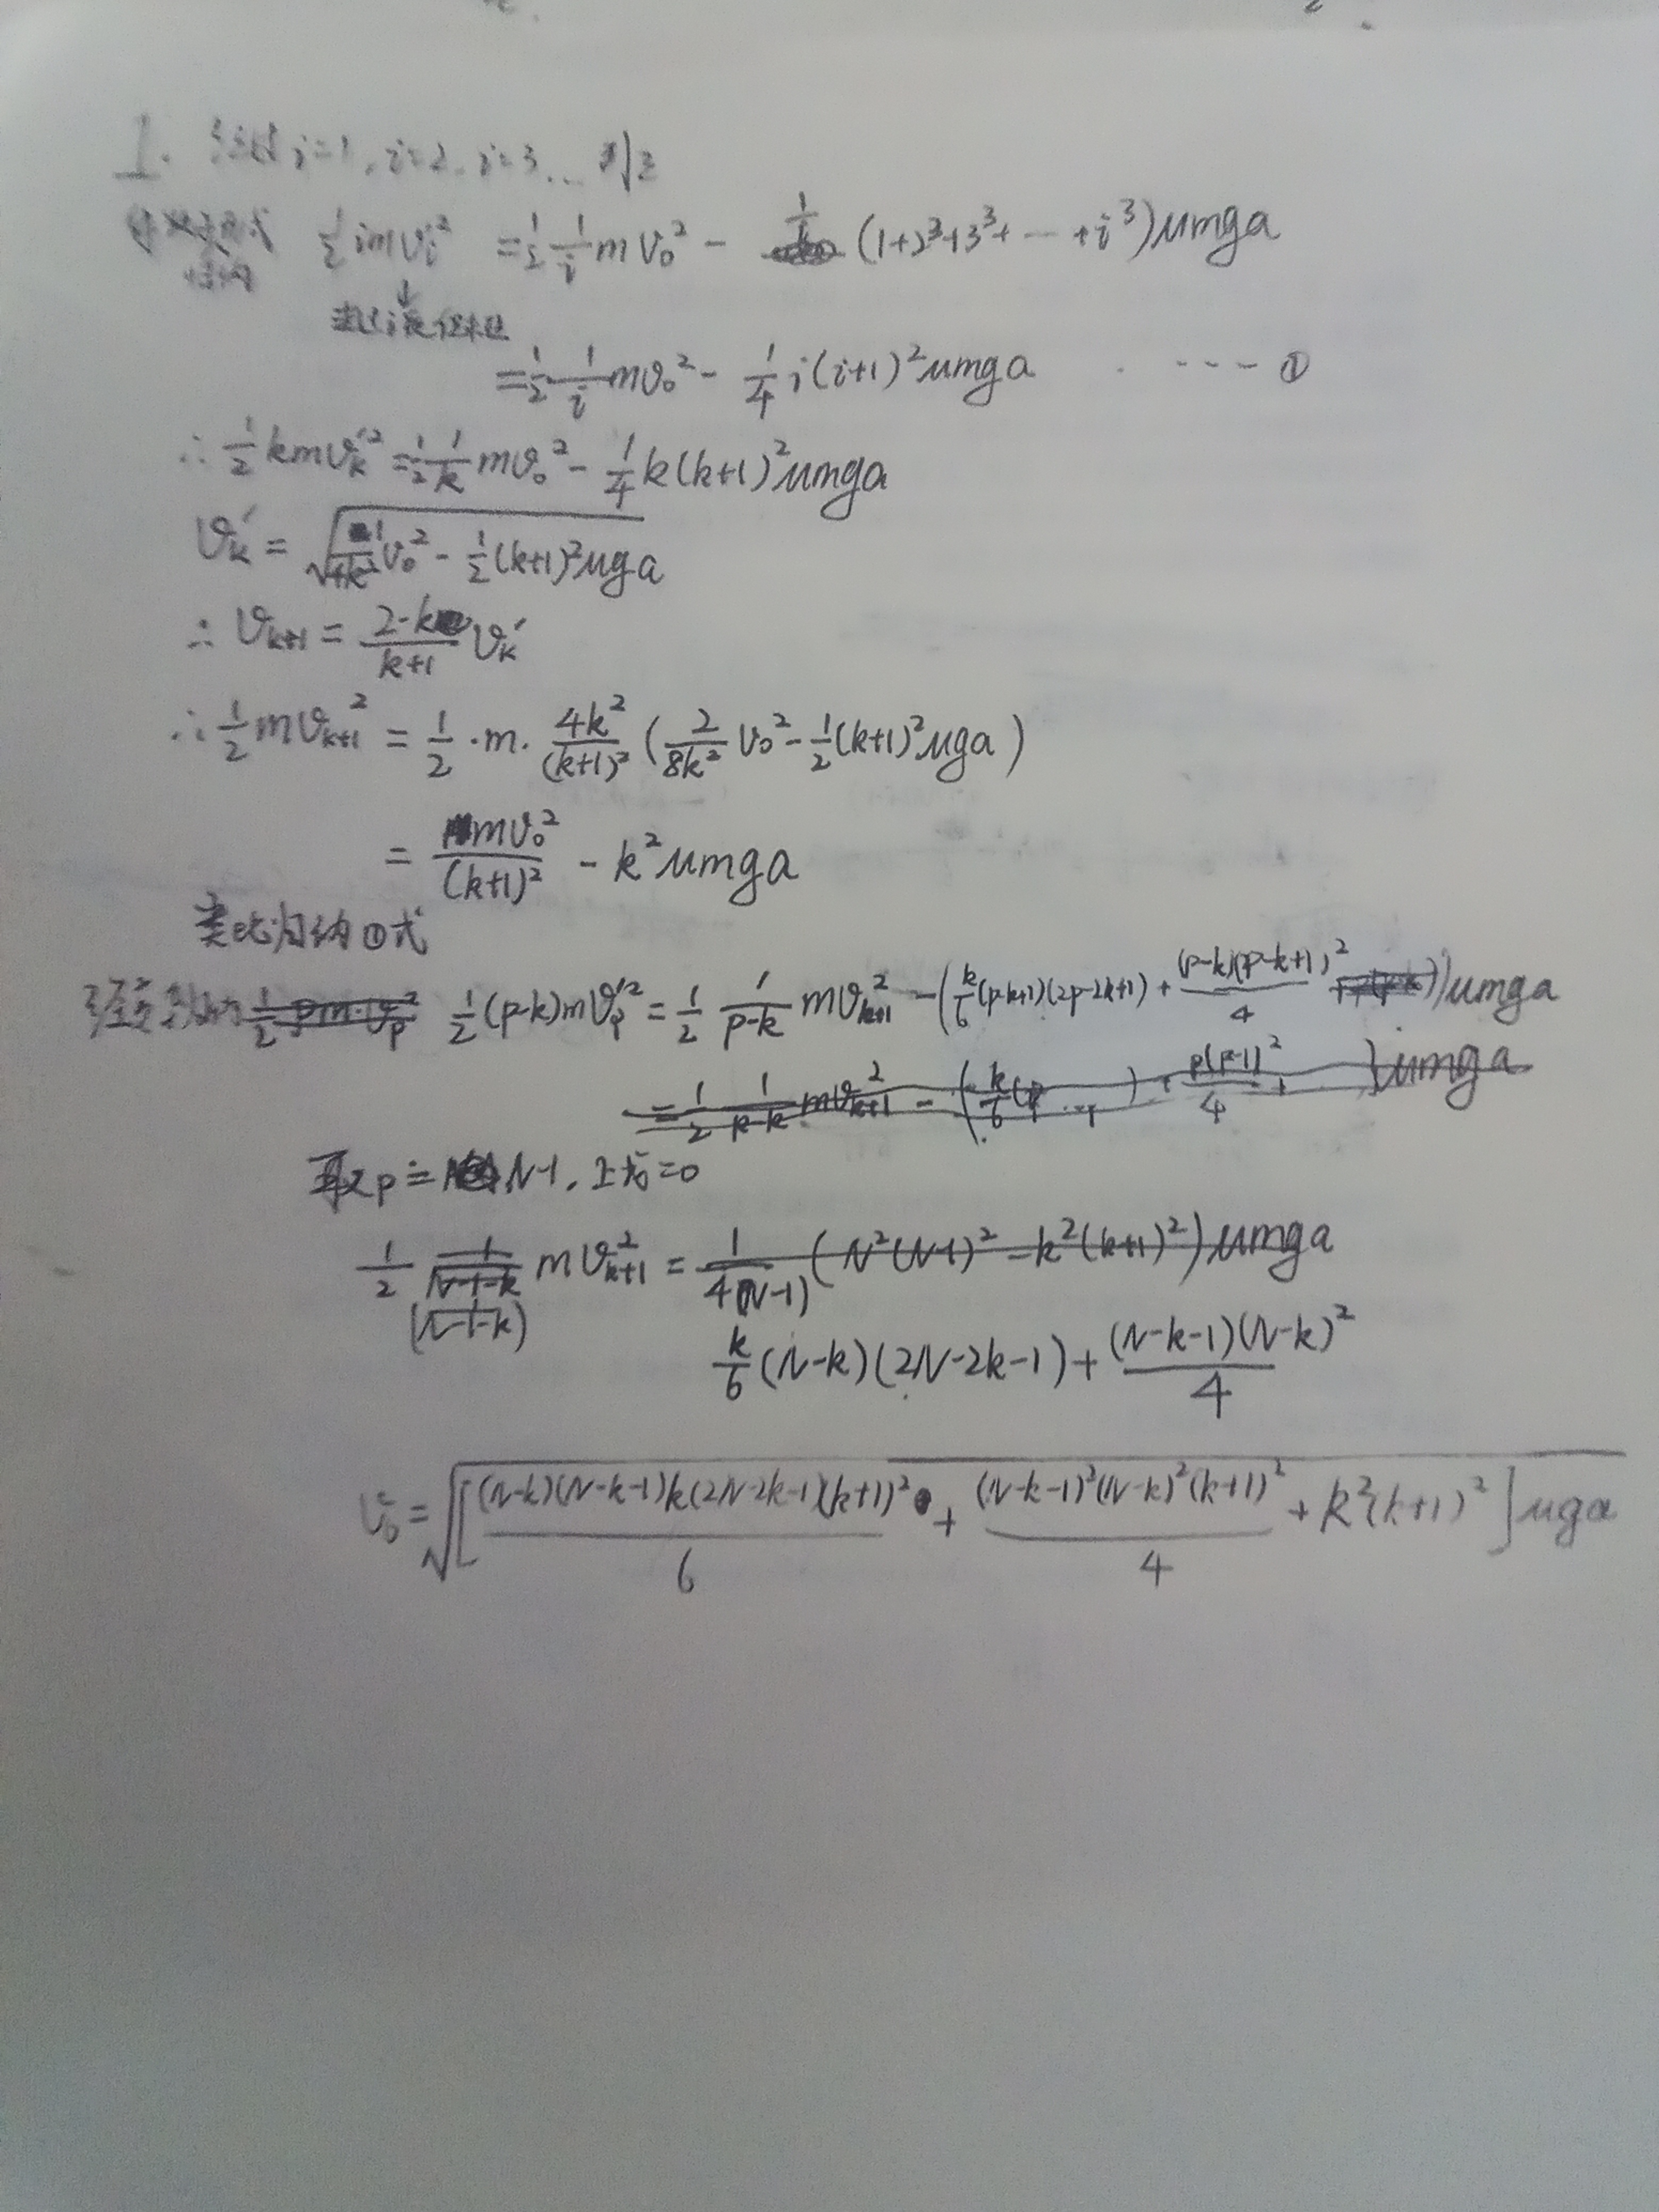 1. 经过i=1, i=2, i=3 ... 列
½imvᵢ'² = ½ 1/i mv₀² - 1/i (1+2³+3³+ ⋯ +i³)μmga
= ½ 1/i mv₀² - ¼ i(i+1)²μmga ---- ①
∴ ½kmvₖ'² = ½ 1/k mv₀² - ¼k(k+1)²μmga
vₖ' = √(v₀² - ½(k+1)²μga
∴ vₖ₊₁ = 2·k/(k+1) vₖ'
∴ ½mvₖ₊₁² = ½·m· 4k²/(k+1)² (2/(8k²) v₀² - ½(k+1)²μga)
= mv₀²/(k+1)² - k²μmga
类比归纳①式
½(p-k)mvₚ'² = ½ 1/(p-k) mvₖ₊₁² - (k/6(p-k+1)(2p-2k+1) + (p-k)(p-k+1)²/4)μmga
取p=N-1, 上式=0
½ 1/(N-1-k) mvₖ₊₁² = 1/(4(N-1)) (N²(N-1)² - k²(k+1)²)μmga
(N-1-k)
k/6 (N-k)(2N-2k-1) + (N-k-1)(N-k)²/4
v₀ = √([(N-k)(N-k-1)k(2N-2k-1)(k+1)²/6 + (N-k-1)²(N-k)²(k+1)²/4 + k²(k+1)²]μga